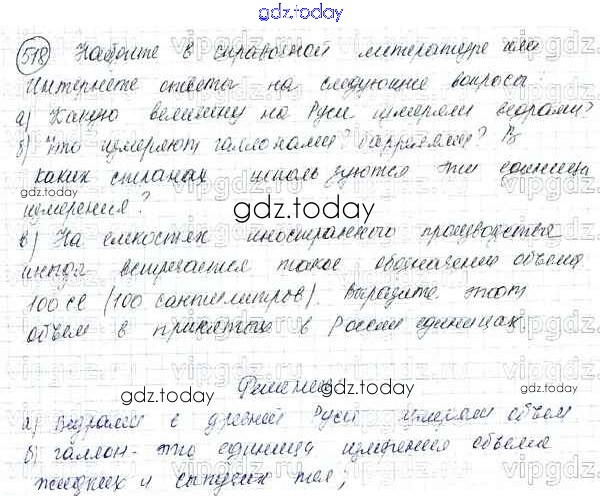 gdz.today
518 Найдите в справочной литературе или
Интернете ответы на следующие вопросы:
а) Какую величину на Руси измеряли ведрами?
б) Что измеряют галлонами? баррелями? В
каких странах используются эти единицы
измерения?
gdz.today
в) На емкостях иностранного производства
иногда встречается такое обозначение объема
100 cl (100 сантилитров). Выразите этот
объем в принятых в России единицах
gdz.today
Решение
а) Ведрами в древней Руси измеряли объем
б) галлон - это единица измерения объема
жидких и сыпучих тел;
gdz.today